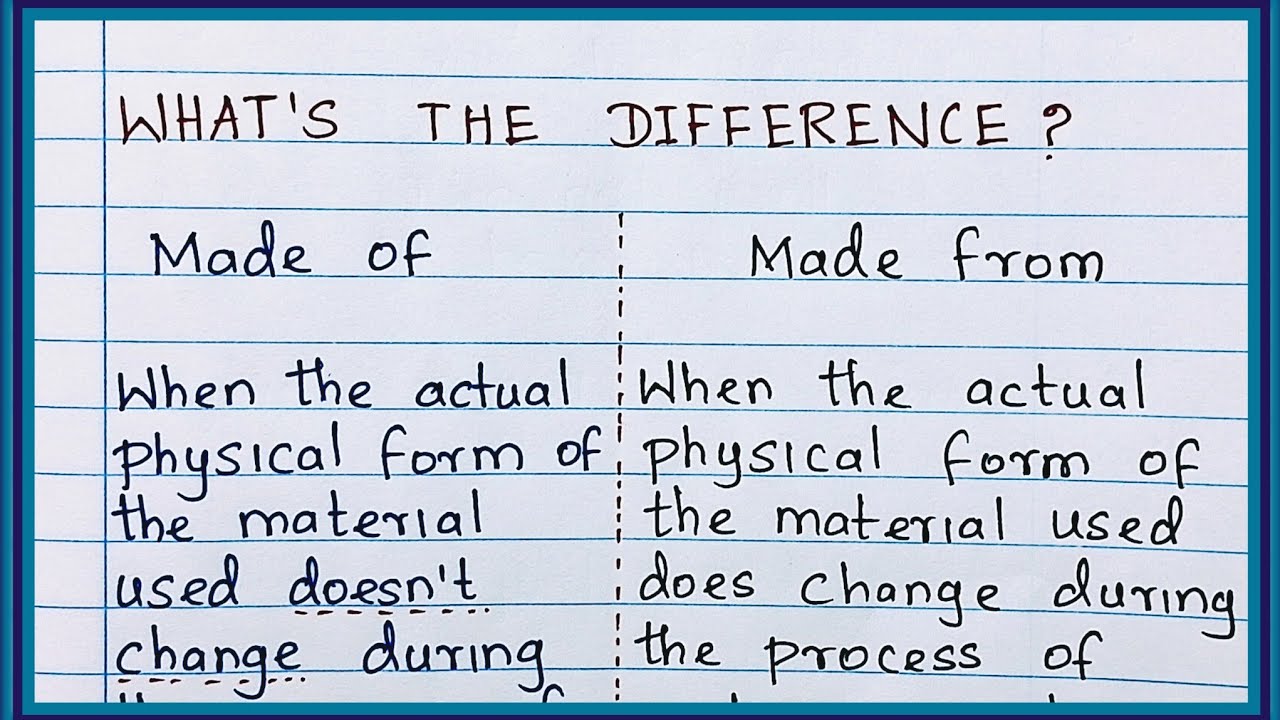 WHAT'S THE DIFFERENCE?
Made of
When the actual
physical form of
the material
used doesn't
change during
Made from
When the actual
physical form of
the material used
does change during
the process of